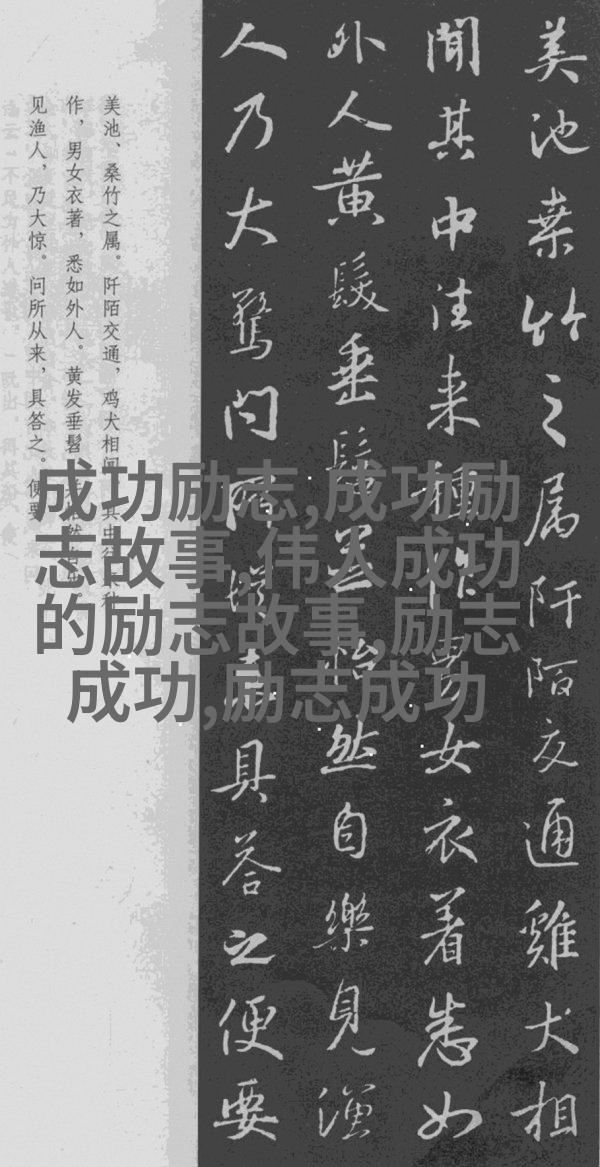 美池桒竹之属阡陌交通雞犬相
聞其中往来種作男女衣着悉如
外人黄髮垂髫並怡然自樂見漁
人乃大驚问所從来具答之便要
美池、桑竹之属。阡陌交通，鸡犬相闻。其中往来种
作，男女衣著，悉如外人。黄发垂髫，并怡然自乐。
见渔人，乃大惊。问所从来，具答之。便要
成功励志,成功励
志故事,伟人成功
的励志故事,励志
成功,励志成功